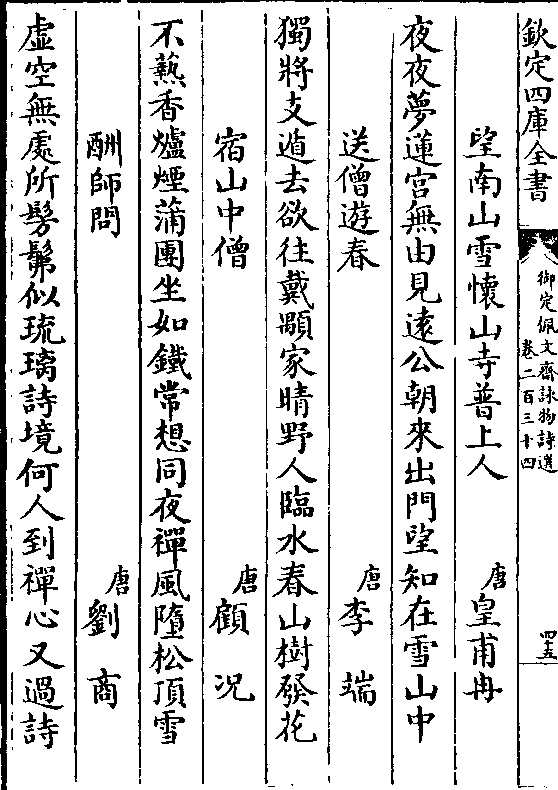 欽定四庫全書
御定佩文齋詠物詩選
卷二百三十四
四十五
望南山雪懷山寺普上人 唐 皇甫冉
夜夜夢蓮宮無由見遠公朝來出門望知在雪山中
送僧遊春 唐 李端
獨將支遁去欲往戴顒家晴野人臨水春山樹發花
宿山中僧 唐 顧況
不爇香爐煙蒲團坐如鐵常想同夜禪風墮松頂雪
酬師問 唐 劉商
虛空無處所髣髴似琉璃詩境何人到禪心又過詩